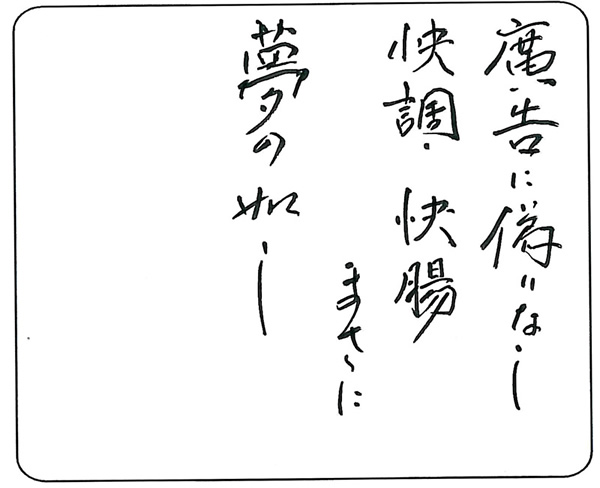 廣告に偽いなし
快調・快腸
まさに
夢の如し